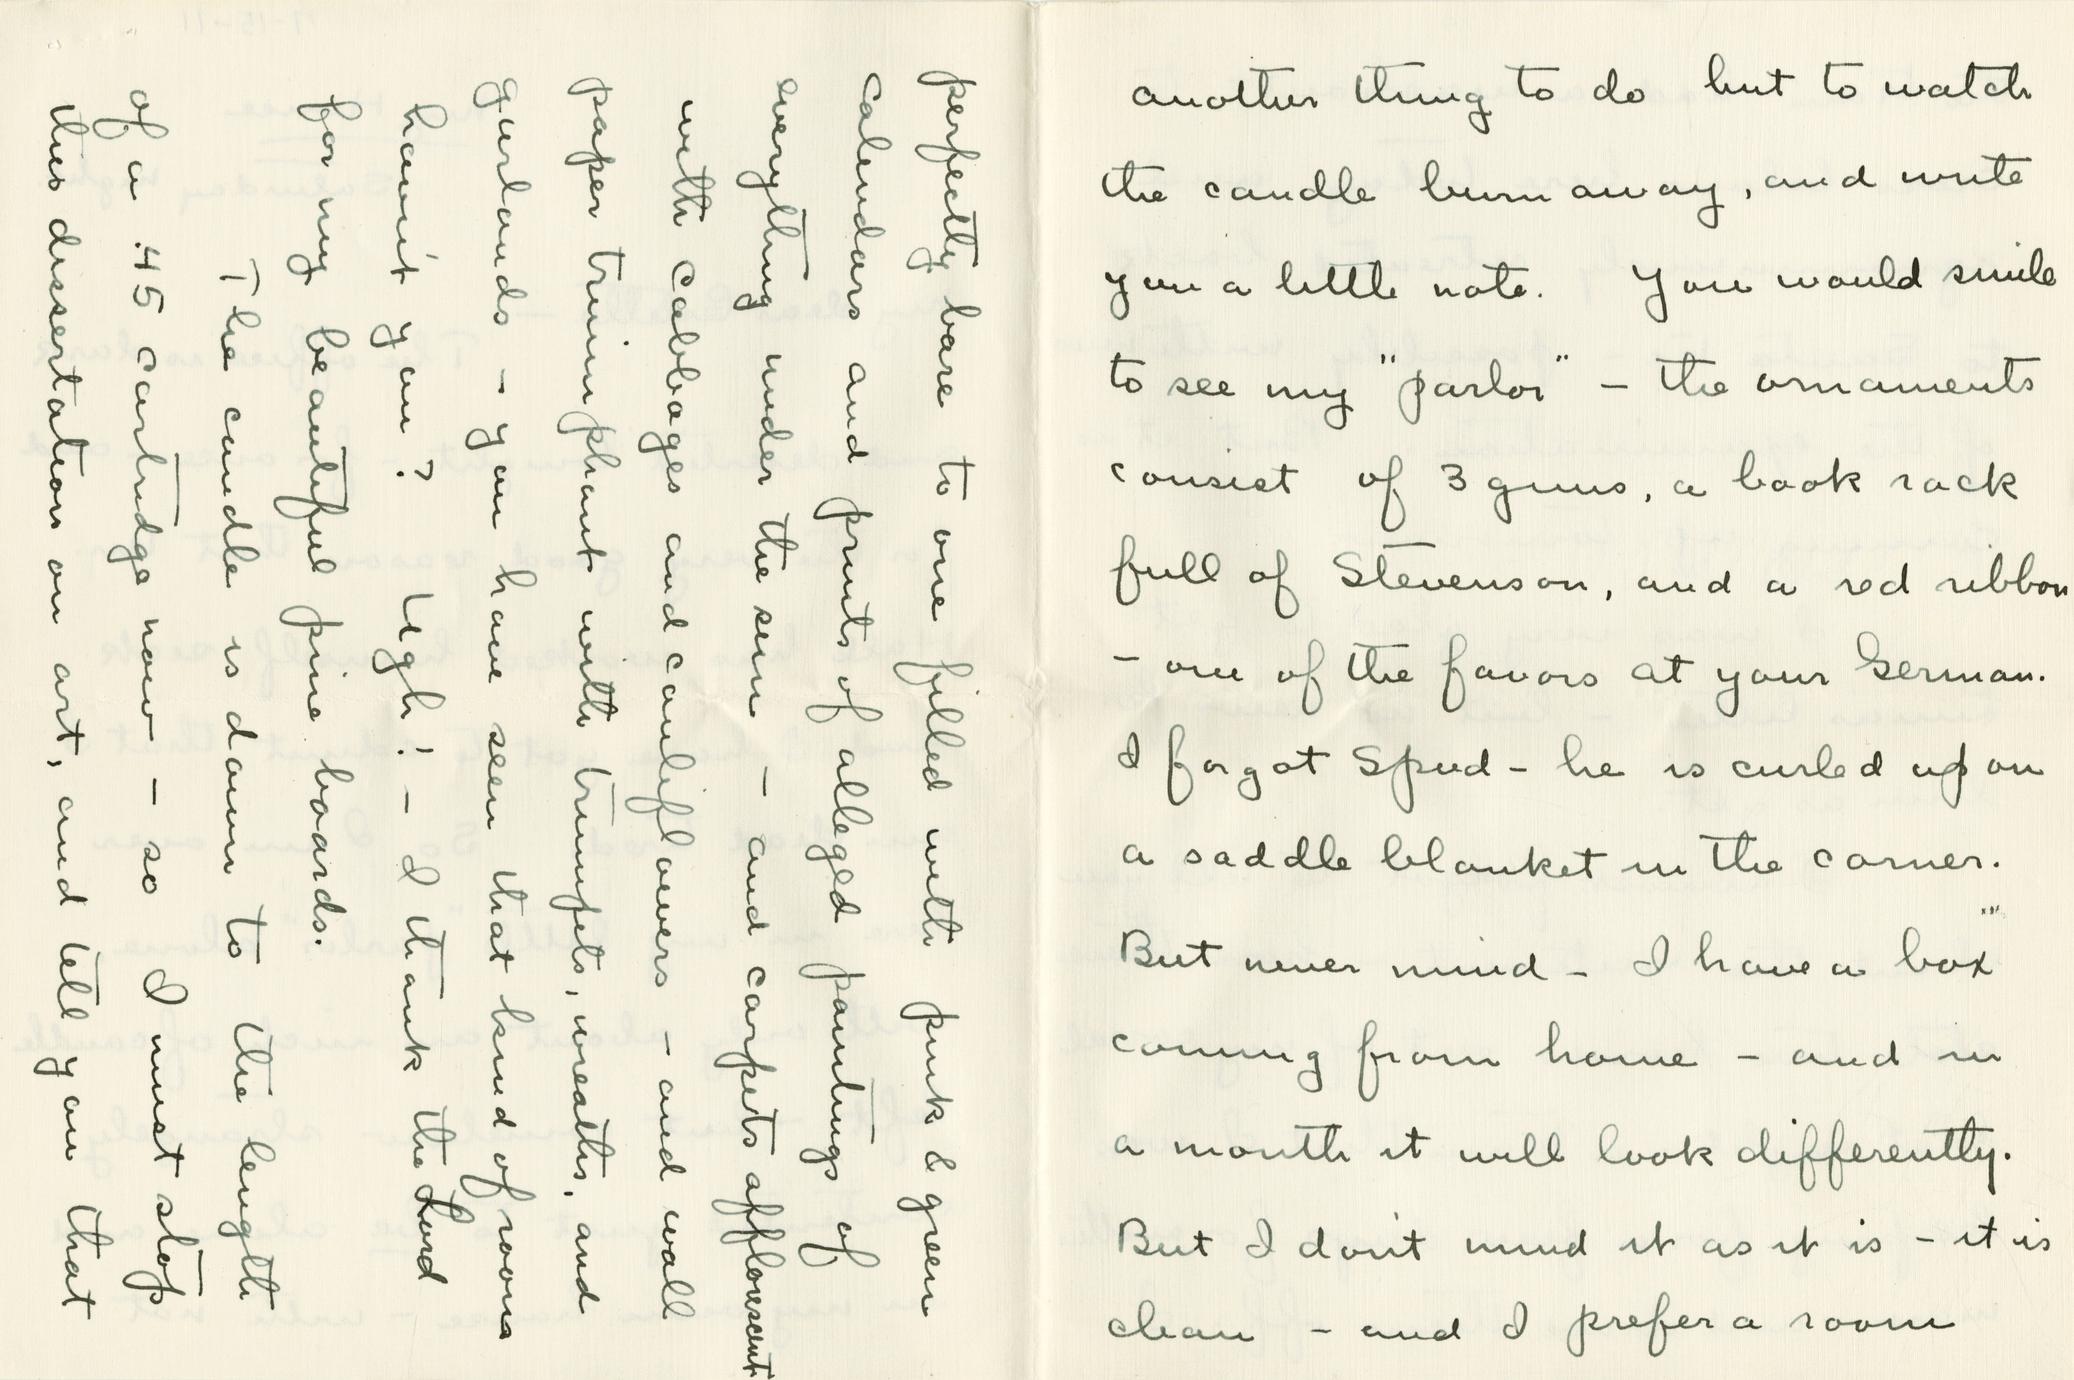 another thing to do but to watch
the candle burn away, and write
you a little note. You would smile
to see my "parlor" – the ornaments
consist of 3 guns, a book rack
full of Stevenson, and a red ribbon
– one of the favors at your German.
I forgot Spud – he is curled up on
a saddle blanket in the corner.
But never mind – I have a "box"
coming from home – and in
a month it will look differently.
But I don't mind it as it is – it is
clean – and I prefer a room
perfectly bare to one filled with pink & green
calendars and prints of alleged paintings of
everything under the sun – and carpets afflorescent
with cabbages and cauliflowers – and wall
paper triumphant with trumpets, wreaths, and
garlands – you have seen that kind of rooms
haven't you? Ugh! – I thank the Lord
for my beautiful pine boards.
The candle is down to the length
of a .45 cartridge now – so I must stop
this dissertation on art, and tell you that